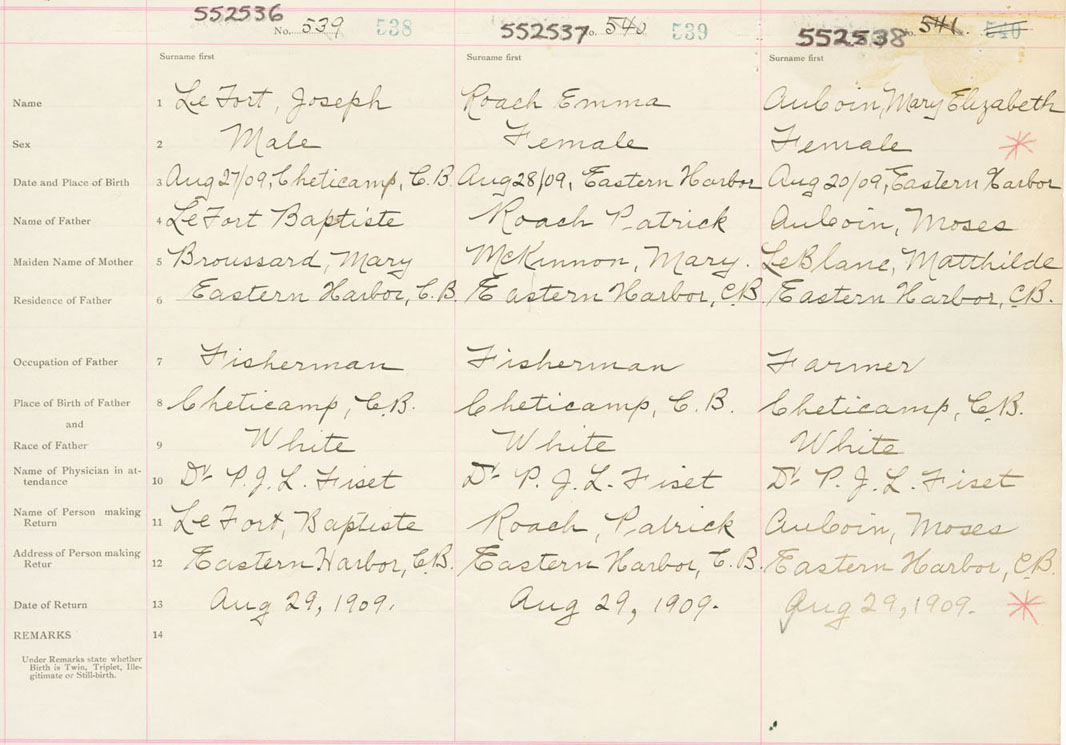 552536 No. 539 538 552537 No. 540 539 552538 No. 541 540
Surname first Surname first Surname first
Name 1 LeFort, Joseph Roach Emma AuCoin, Mary Elizabeth
Sex 2 Male Female Female
Date and Place of Birth 3 Aug 27/09, Cheticamp, C.B. Aug 28/09, Eastern Harbor Aug 20/09, Eastern Harbor
Name of Father 4 LeFort Baptiste Roach Patrick AuCoin, Moses
Maiden Name of Mother 5 Broussard, Mary McKinnon, Mary. LeBlanc, Matthilde
Residence of Father 6 Eastern Harbor, C.B. Eastern Harbor, C.B. Eastern Harbor, C.B.
Occupation of Father 7 Fisherman Fisherman Farmer
Place of Birth of Father 8 Cheticamp, C.B. Cheticamp, C.B. Cheticamp, C.B.
and
Race of Father 9 White White White
Name of Physician in at-
tendance 10 Dr P.J.L. Fiset Dr P.J.L. Fiset Dr P.J.L. Fiset
Name of Person making
Return 11 LeFort, Baptiste Roach, Patrick AuCoin, Moses
Address of Person making
Retur 12 Eastern Harbor, C.B. Eastern Harbor, C.B. Eastern Harbor, C.B.
Date of Return 13 Aug 29, 1909. Aug 29, 1909. Aug 29, 1909.
REMARKS 14
Under Remarks state whether
Birth is Twin, Triplet, Ille-
gitimate or Still-birth.